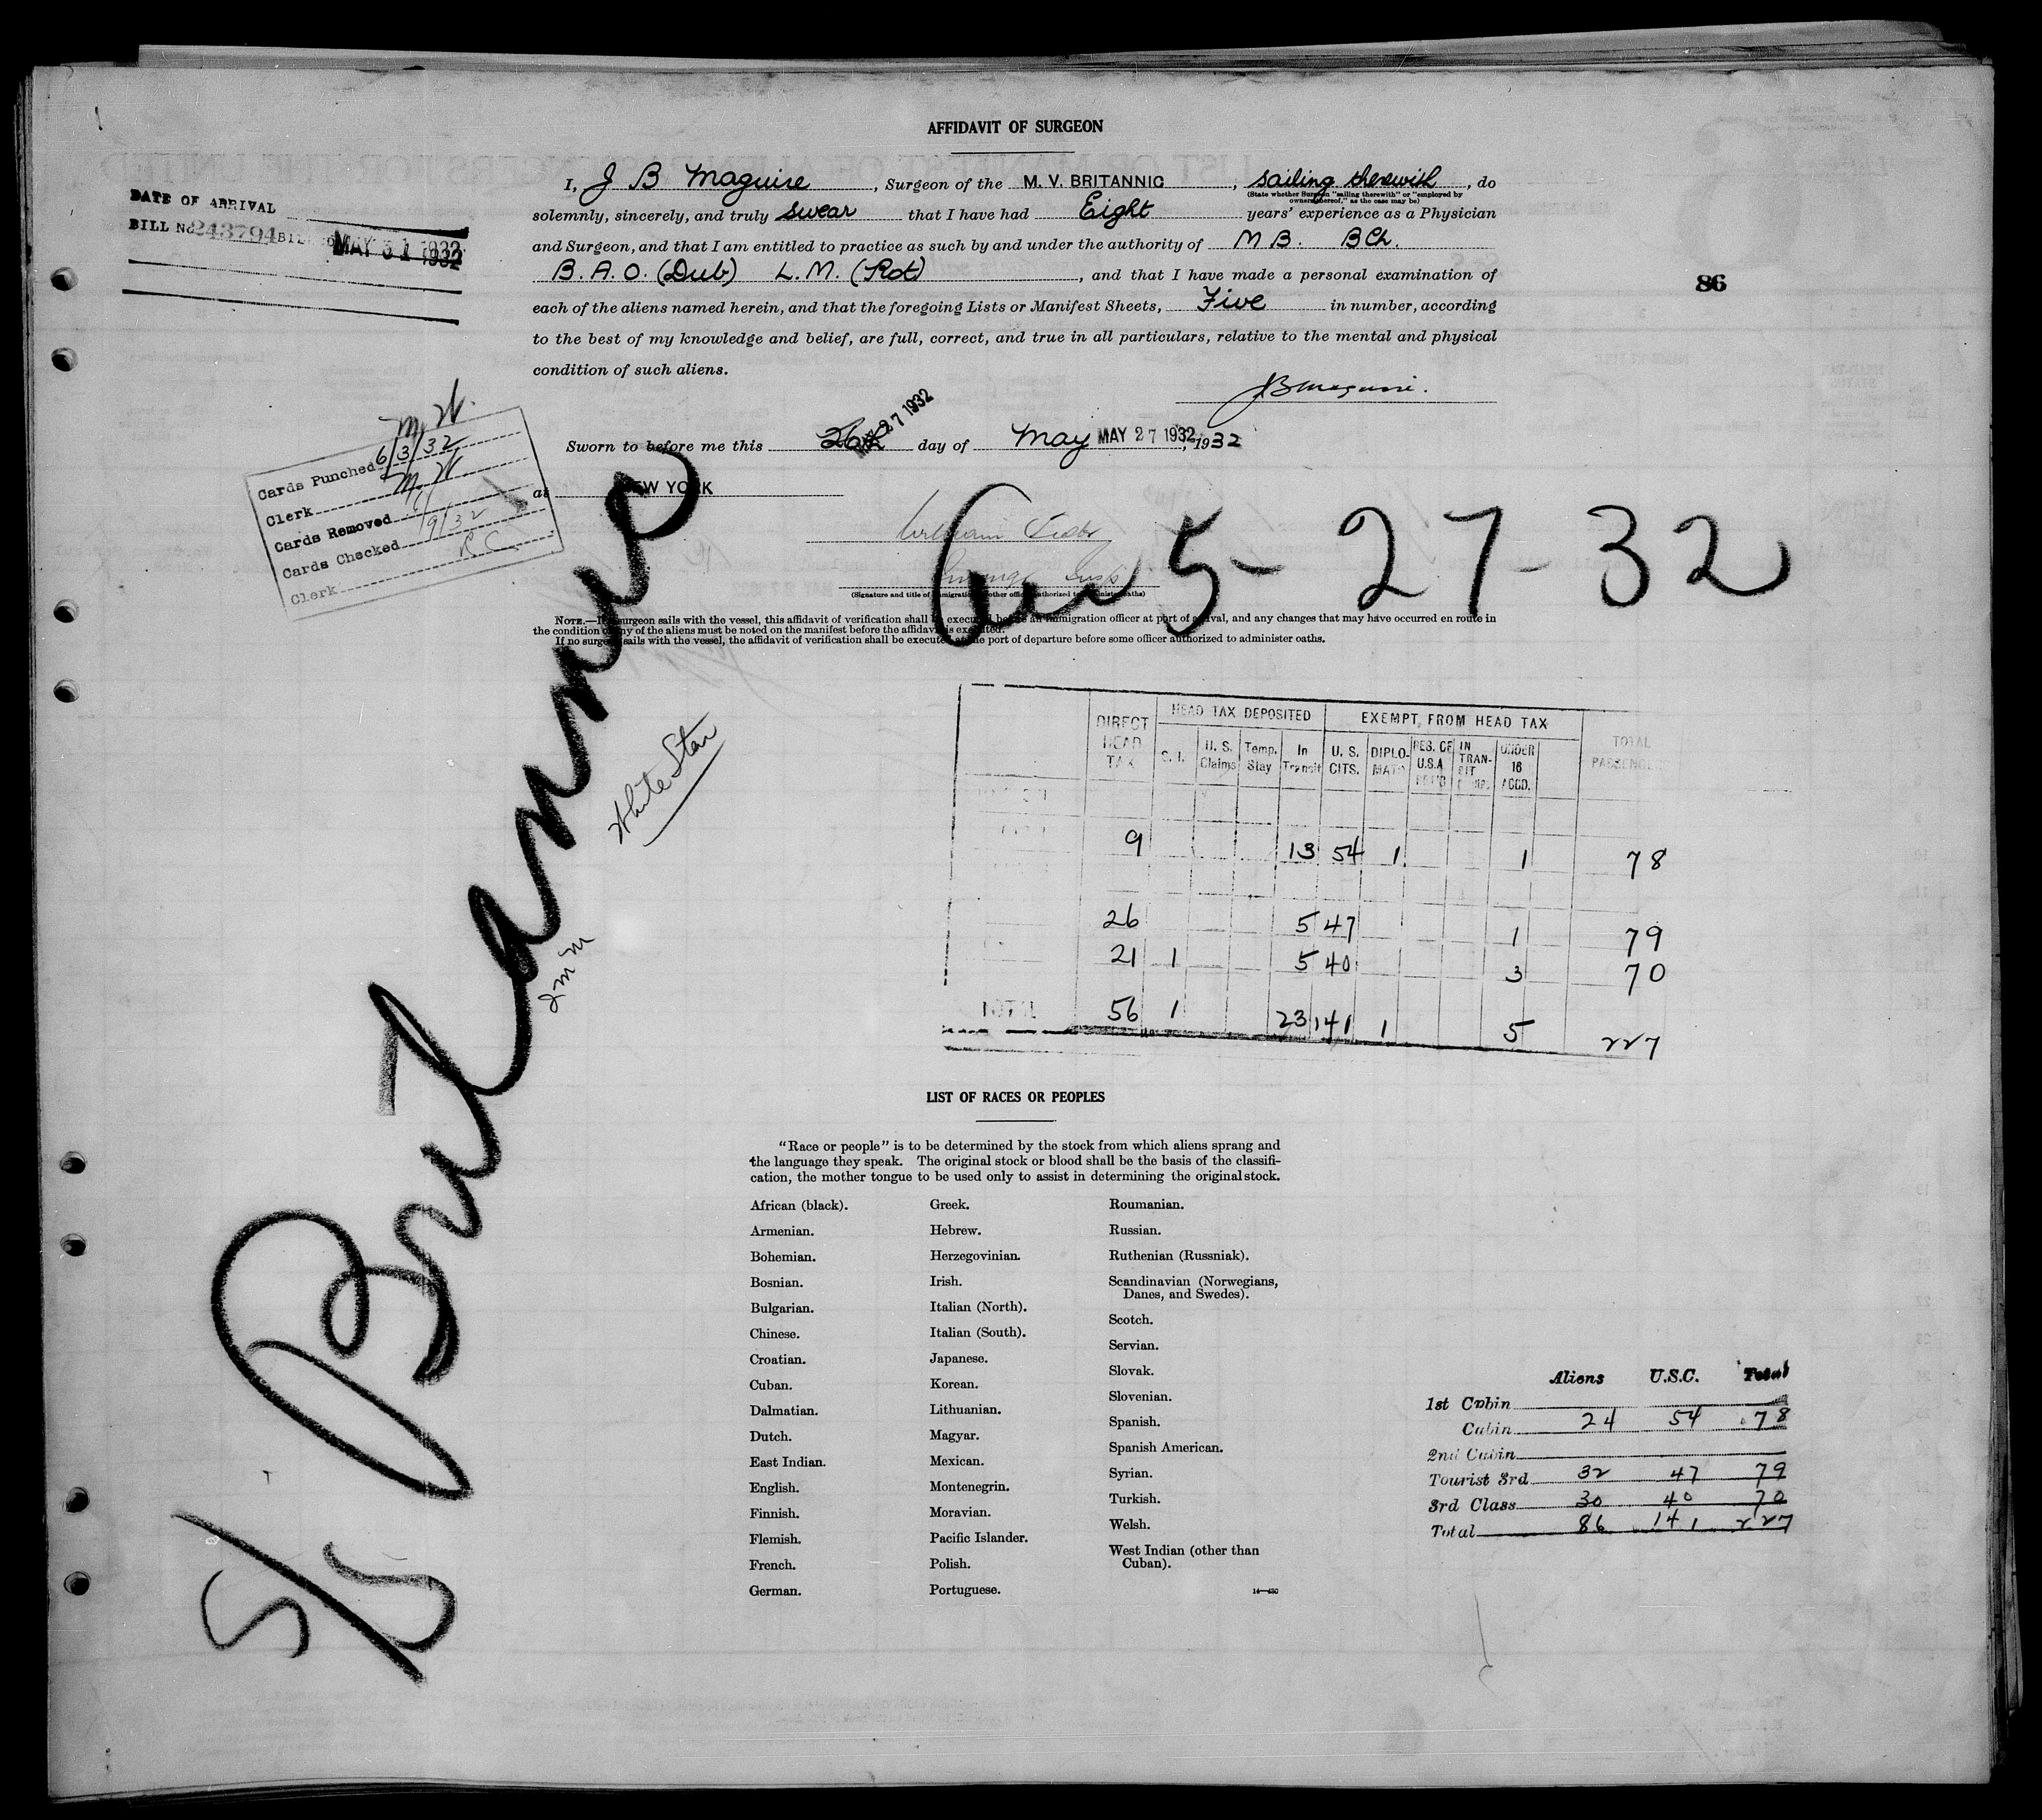 AFFIDAVIT OF SURGEON
I, J B Maguire, Surgeon of the M. V. BRITANNIC, sailing therewith, do
(State whether Surgeon "sailing therewith" or "employed by
owners thereof," as the case may be)
solemnly, sincerely, and truly swear that I have had Eight years' experience as a Physician
and Surgeon, and that I am entitled to practice as such by and under the authority of M B. B Ch.
B. A. O. (Dub) L. M. (Rot), and that I have made a personal examination of
each of the aliens named herein, and that the foregoing Lists or Manifest Sheets, Five in number, according
to the best of my knowledge and belief, are full, correct, and true in all particulars, relative to the mental and physical
condition of such aliens.
JB Maguire.
DATE OF ARRIVAL
BILL No 243794 BILL
MAY 31 1932
86
Sworn to before me this 26th MAY 27 1932 day of May MAY 27 1932, 1932
at NEW YORK
William
(Signature and title of immigration or other officer authorized to administer oaths)
M. W.
Cards Punched 6/3/32
Clerk M. W.
Cards Removed
Cards Checked 6/9/32
Clerk R C
5-27-32
NOTE.—If a surgeon sails with the vessel, this affidavit of verification shall be executed before an immigration officer at port of arrival, and any changes that may have occurred en route in
the condition of any of the aliens must be noted on the manifest before the affidavit is executed.
If no surgeon sails with the vessel, the affidavit of verification shall be executed at the port of departure before some officer authorized to administer oaths.
S/S Britannic
White Star
DIRECT HEAD TAX | HEAD TAX DEPOSITED | EXEMPT FROM HEAD TAX | TOTAL PASSENGERS
S. I. | U. S. Claims | Temp. Stay | In Transit | U. S. CITS. | DIPLO-MATS | RES. OF U.S.A | IN TRAN-SIT | UNDER 16 ACCD.
9 13 54 1 1 78
26 5 47 1 79
21 1 5 40 3 70
TOTAL 56 1 23 141 1 5 227
LIST OF RACES OR PEOPLES
"Race or people" is to be determined by the stock from which aliens sprang and
the language they speak. The original stock or blood shall be the basis of the classifi-
cation, the mother tongue to be used only to assist in determining the original stock.
African (black).
Armenian.
Bohemian.
Bosnian.
Bulgarian.
Chinese.
Croatian.
Cuban.
Dalmatian.
Dutch.
East Indian.
English.
Finnish.
Flemish.
French.
German.
Greek.
Hebrew.
Herzegovinian.
Irish.
Italian (North).
Italian (South).
Japanese.
Korean.
Lithuanian.
Magyar.
Mexican.
Montenegrin.
Moravian.
Pacific Islander.
Polish.
Portuguese.
Roumanian.
Russian.
Ruthenian (Russniak).
Scandinavian (Norwegians,
Danes, and Swedes).
Scotch.
Servian.
Slovak.
Slovenian.
Spanish.
Spanish American.
Syrian.
Turkish.
Welsh.
West Indian (other than
Cuban).
Aliens U.S.C. Total
1st Cabin
Cabin 24 54 78
2nd Cabin
Tourist 3rd 32 47 79
3rd Class 30 40 70
Total 86 141 227